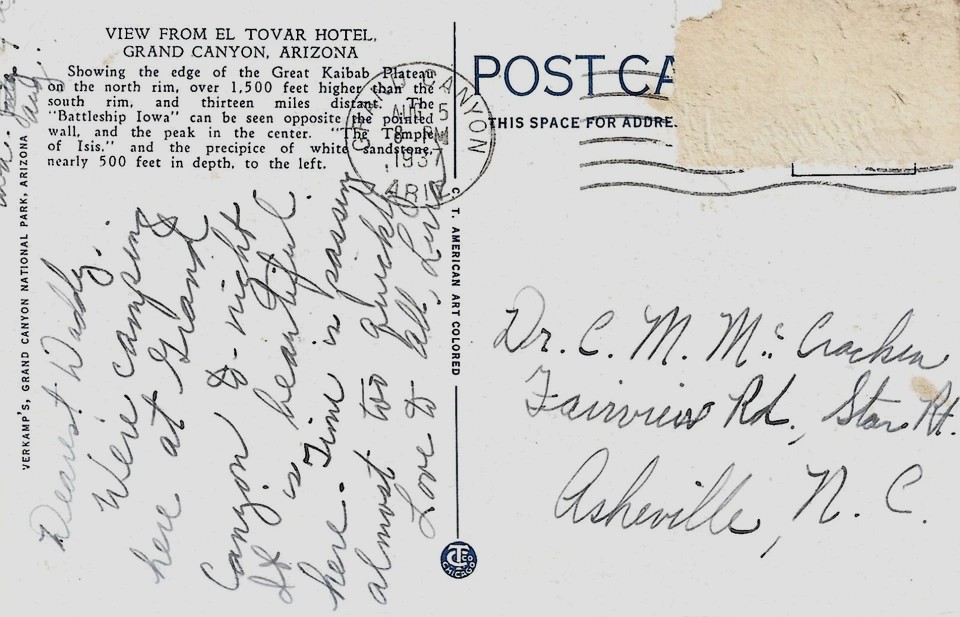 VIEW FROM EL TOVAR HOTEL,
GRAND CANYON, ARIZONA
Showing the edge of the Great Kaibab Plateau
on the north rim, over 1,500 feet higher than the
south rim, and thirteen miles distant. The
"Battleship Iowa" can be seen opposite the pointed
wall, and the peak in the center. "The Temple
of Isis." and the precipice of white sandstone,
nearly 500 feet in depth, to the left.
VERKAMP'S, GRAND CANYON NATIONAL PARK, ARIZONA
Dearest Daddy.
We're camping
here at Grand
Canyon to-night
It is beautiful.
here. Time is passing
almost too quickly
Love to all,
C. T. AMERICAN ART COLORED
CHICAGO
GRAND CANYON
AUG 5
8 PM
1937
ARIZ.
POST CA
THIS SPACE FOR ADDRE
Dr. C. M. Mc Cracken
Fairview Rd., Star Rt.
Asheville, N. C.